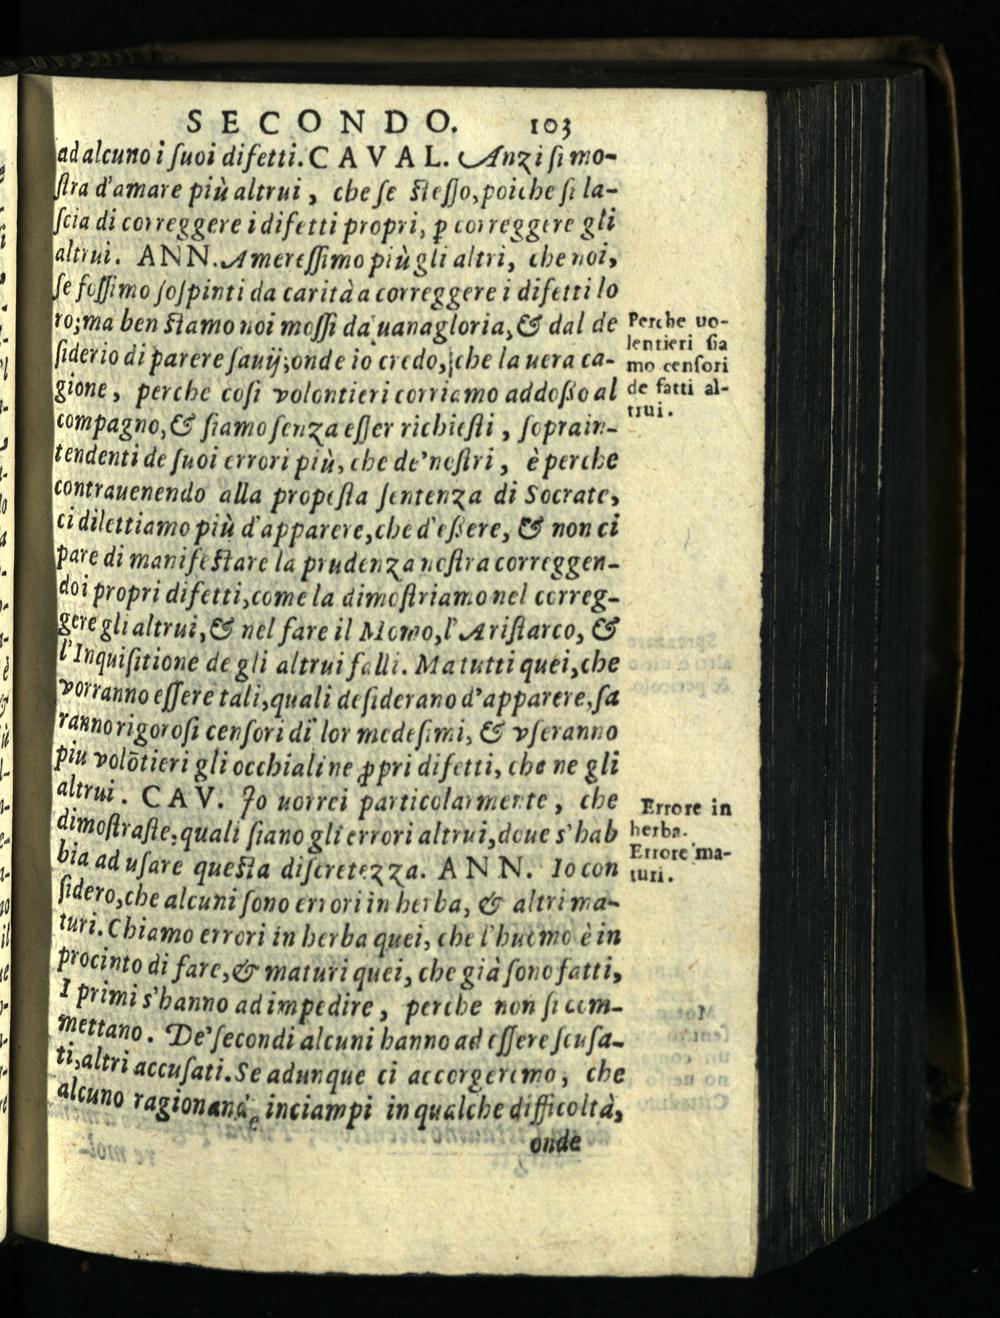 SECONDO. 103
ad alcuno i ſuoi difetti. CAVAL. Anzi ſi mo-
ſtra d'amare più altrui, che ſe ſteſſo, poiche ſi la-
ſcia di correggere i difetti propri, ꝑ correggere gli
altrui. ANN. Amereſſimo più gli altri, che noi,
ſe foſſimo ſoſpinti da carità a correggere i difetti lo
ro; ma ben ſiamo noi moſſi da uanagloria, & dal de
ſiderio di parere ſauij; onde io credo, che la uera ca-
gione, perche coſi volentieri corriamo addoßo al
compagno, & ſiamo ſenza eſſer richieſti, ſoprain-
tendenti de ſuoi errori più, che de' noſtri, è perche
contrauenendo alla propoſta ſentenza di Socrate,
ci dilettiamo più d'apparere, che d'eßere, & non ci
pare di manifeſtare la prudenza noſtra correggen-
do i propri difetti, come la dimoſtriamo nel correg-
gere gli altrui, & nel fare il Momo, l'Ariſtarco, &
l'Inquiſitione de gli altrui falli. Ma tutti quei, che
vorranno eſſere tali, quali deſiderano d'apparere, ſa
ranno rigoroſi cenſori di lor medeſimi, & vſeranno
piu volōtieri gli occhiali ne ꝓpri difetti, che ne gli
altrui. CAV. Io uorrei particolarmente, che
dimoſtraſte, quali ſiano gli errori altrui, doue s'hab
bia ad uſare queſta diſcretezza. ANN. Io con
ſidero, che alcuni ſono errori in herba, & altri ma-
turi. Chiamo errori in herba quei, che l'huomo è in
procinto di fare, & maturi quei, che già ſono fatti,
I primi s'hanno ad impedire, perche non ſi com-
mettano. De' ſecondi alcuni hanno ad eſſere ſcuſa-
ti, altri accuſati. Se adunque ci accorgeremo, che
alcuno ragionando inciampi in qualche difficoltà,
onde
Perche uo-
lentieri ſia
mo cenſori
de fatti al-
trui.
Errore in
herba.
Errore ma-
turi.